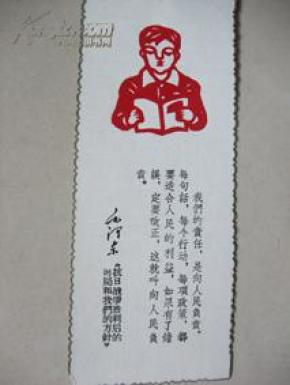 我們的責任，是向人民負責。
每句話，每个行动，每項政策，都
要适合人民的利益，如果有了錯
誤，定要改正，这就叫向人民負
責。
毛泽东
《抗日战爭胜利后的
时局和我們的方針》